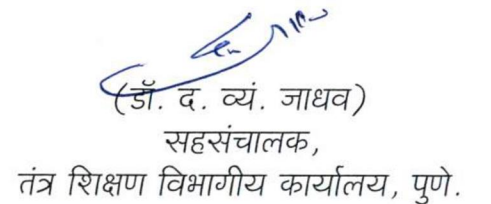 (डॉ. द. व्यं. जाधव)
सहसंचालक,
तंत्र शिक्षण विभागीय कार्यालय, पुणे.